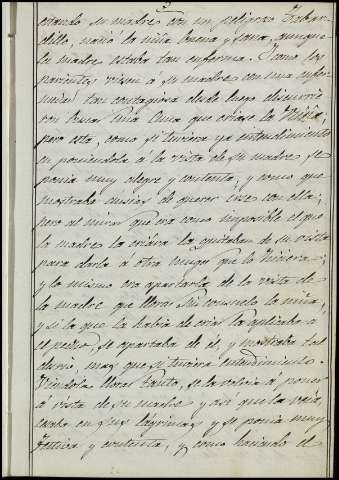 estando su madre con un peligroso Tabar-
dillo, nació la niña buena y sana, aunque
la madre estaba tan enferma. Como los
parientes viesen á su madre con una enfer-
medad tan contagiosa desde luego
con buscar una Ama que criase la Niña;
pero esta, como si tuviera ya entendimiento
en poniendola á la vista de su madre se
ponia muy alegre y contenta; y como que
mostraba ánsias de querer irse con ella;
pero al mirar que era como imposible el que
la madre la criára la quitaban de su vista
para darla á otra muger que la
y lo mismo era apartarla de la vista de
la madre que llorar sin consuelo la niña;
y si la que la habia de criar la aplicaba á
el pecho, se apartaba de el, y mostraba tal
duelo, mas que si tuviera entendimiento.
Viendola llorar tanto, se la volvia á poner
á vista de su madre y asi que la veia
cesaba en sus lágrimas y se ponia muy
festiva y contenta; y como haciendo el